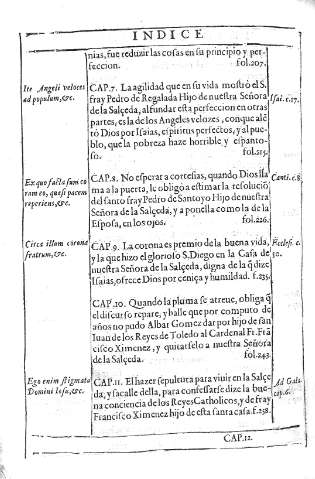 INDICE
nias, fue reduzir las cosas en su principio y per-
feccion. fol.207.
Ite Angeli veloces
ad populum, &c.
CAP.7. La agilidad que en su vida mostrò el S.
fray Pedro de Regalada Hijo de nuestra Señora
de la Salçeda, al fundar esta perfeccion en otras
partes, es la de los Angeles velozes, con que alé
tò Dios por Isaias, espiritus perfectos, y al pue-
blo, que la pobreza haze horrible y espanto-
so. fol.215.
Isai. c.17.
Ex quo facta sum co
ram eo, quasi pacem
reperiens, &c.
CAP.8. No esperar a cortesias, quando Dios lla
ma a la puerta, le obligò a estimar la resoluciõ
del santo fray Pedro de Santoyo Hijo de nuestra
Señora de la Salçeda, y a ponella como la de la
Esposa, en los ojos. fol.226.
Canti. c.8.
Circa illum corona
fratrum, &c.
CAP.9. La corona es premio de la buena vida,
y la que hizo el glorioso S. Diego en la Casa de
nuestra Señora de la Salçeda, digna de la q̃ dize
Isaias, ofrece Dios por ceniça y humildad. f.235.
Ecclesi. c.
50.
CAP.10. Quando la pluma se atreue, obliga q̃
el discurso repare, y halle que por computo de
años no pudo Albar Gomez dar por hijo de san
Iuan de los Reyes de Toledo al Cardenal Fr. Frã
cisco Ximenez, y quitarselo a nuestra Señora
de la Salçeda. fol.243.
Ego enim stigmata
Domini Iesu, &c.
CAP.11. El hazer sepultura para viuir en la Salçe
da, y sacalle della, para confessarse dize la bue-
na conciencia de los Reyes Catholicos, y de fray
Francisco Ximenez hijo de esta santa casa. f.258.
Ad Gala.
cap.6.
CAP.12.